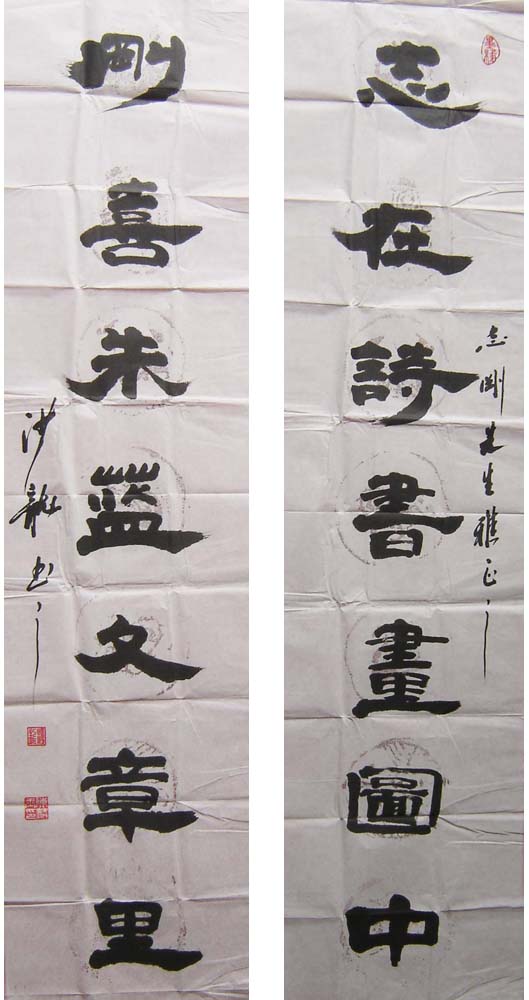 志在詩書畫圖中
志剛先生雅正
剛喜朱蓝文章里
沙龍书